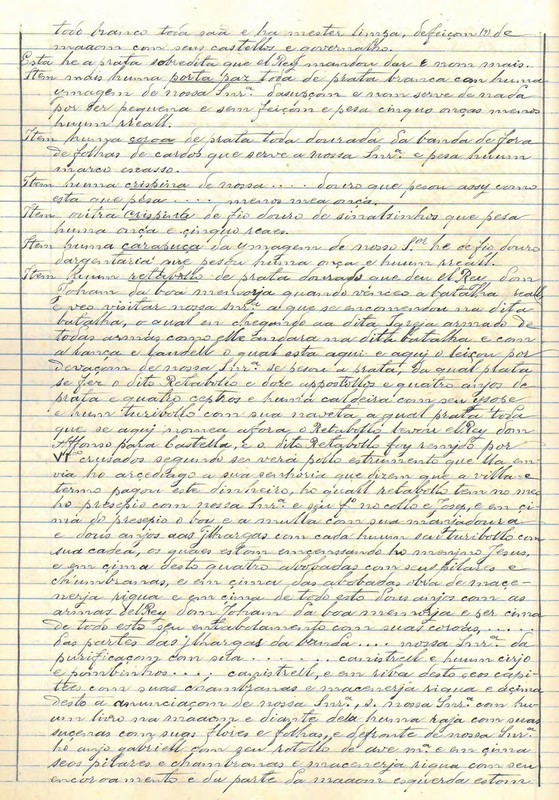 todo branco toda saã e ha mester limpa, defeiçom (?) de
maaom com seus castellos e governalho.
Esta he a prata sobredita que el Rey mandou dar e nom mais.
Item mais huma porta paz toda de prata branca com huma
ymagem de nossa Snrª. dasupçom e nom serve de nada
por ser pequena e sem feiçom e pesa cinquo onças menos
huum rreall.
Item huma coroa de prata toda dourada da banda de fora
de folhas de cardos que serve a nossa Snrª. e pesa huum
marco escasso.
Item huma crispina de nossa .... douro que pesou assy como
esta que pesa ..... menos mea onça.
Item outra crispina de fio douro de sinalsinhos que pesa
huma onça e cinquo reaes.
Item huma carapuça da ymagem de nosso Sºʳ he de fio douro
dargentaria que pesou huma onça e huum rreall.
Item huum retabollo de prata dourado que deu el Rey dom
Joham da boa memorja quando vençeo a batalha reall
e veo visitar nossa Snrª. a que se encomendou na dita
batalha, o qual em chegando aa dita Igreja armado de
todas armas como elle andara na dita batalha e com
a lança e laudell o qual esta aqui e aquj o leixou por
devaçom de nossa Snrª. se pesou a prata, da qual prata
se fez o dito Retabollo e doze apostollos e quatro anjos de
prata e quatro ceptros e huma caldeira com seu ysope
e hum turibollo com sua naveta, a qual prata toda
que se aqui nomea afora o Retabollo levou el Rey dom
Affonso para Castella, e o dito Retabollo foy remjdo por
crusados segundo se verá pollo estrumento que lla en
via ho arçediago a sua senhoria que dizem que a villa e
termo pagou este dinheiro, ho quall retabollo tem no meo
ho presepio com nossa Snrª. e seu fº no collo e Josep, e em çi
ma do presepio o boy e a mulla com sua manjadoura
e dous anjos aas jlhargas com cada huum seu turibollo com
sua cadea, os quaes estam ençenssando ho menjno Jesus,
e em çima desto quatro abobadas com seus pilares e
chambranas, e em çima das abobadas obra de maçe-
nerja riqua e em çima de todo esto dous anjos com as
armas del Rey dom Joham da boa memorja e per cima
de todo esto seu entrabolamento com suas coroas, .....
das partes das jlhargas da banda .... nossa Snrª. da
purificaçom com sua ........ canistrell e huum cirjo
e pombinhos ....; canistrell, e em riva desto seos capi-
tées com suas chambranas e maçenerja riqua e deçima
desto a anunciaçom de nossa Snrª., s. nossa Snrª. com hu-
um livro na maaom e diante dela huma raja com suas
suçenas com suas flores e folhas, e defronte de nossa Snrª.
ho anjo gabriell com seu rotollo de ave mª. e em çima
seos pilares e chambranas e maçenerja riqua com seu
encoroamento e da parte da maaom esquerda estam